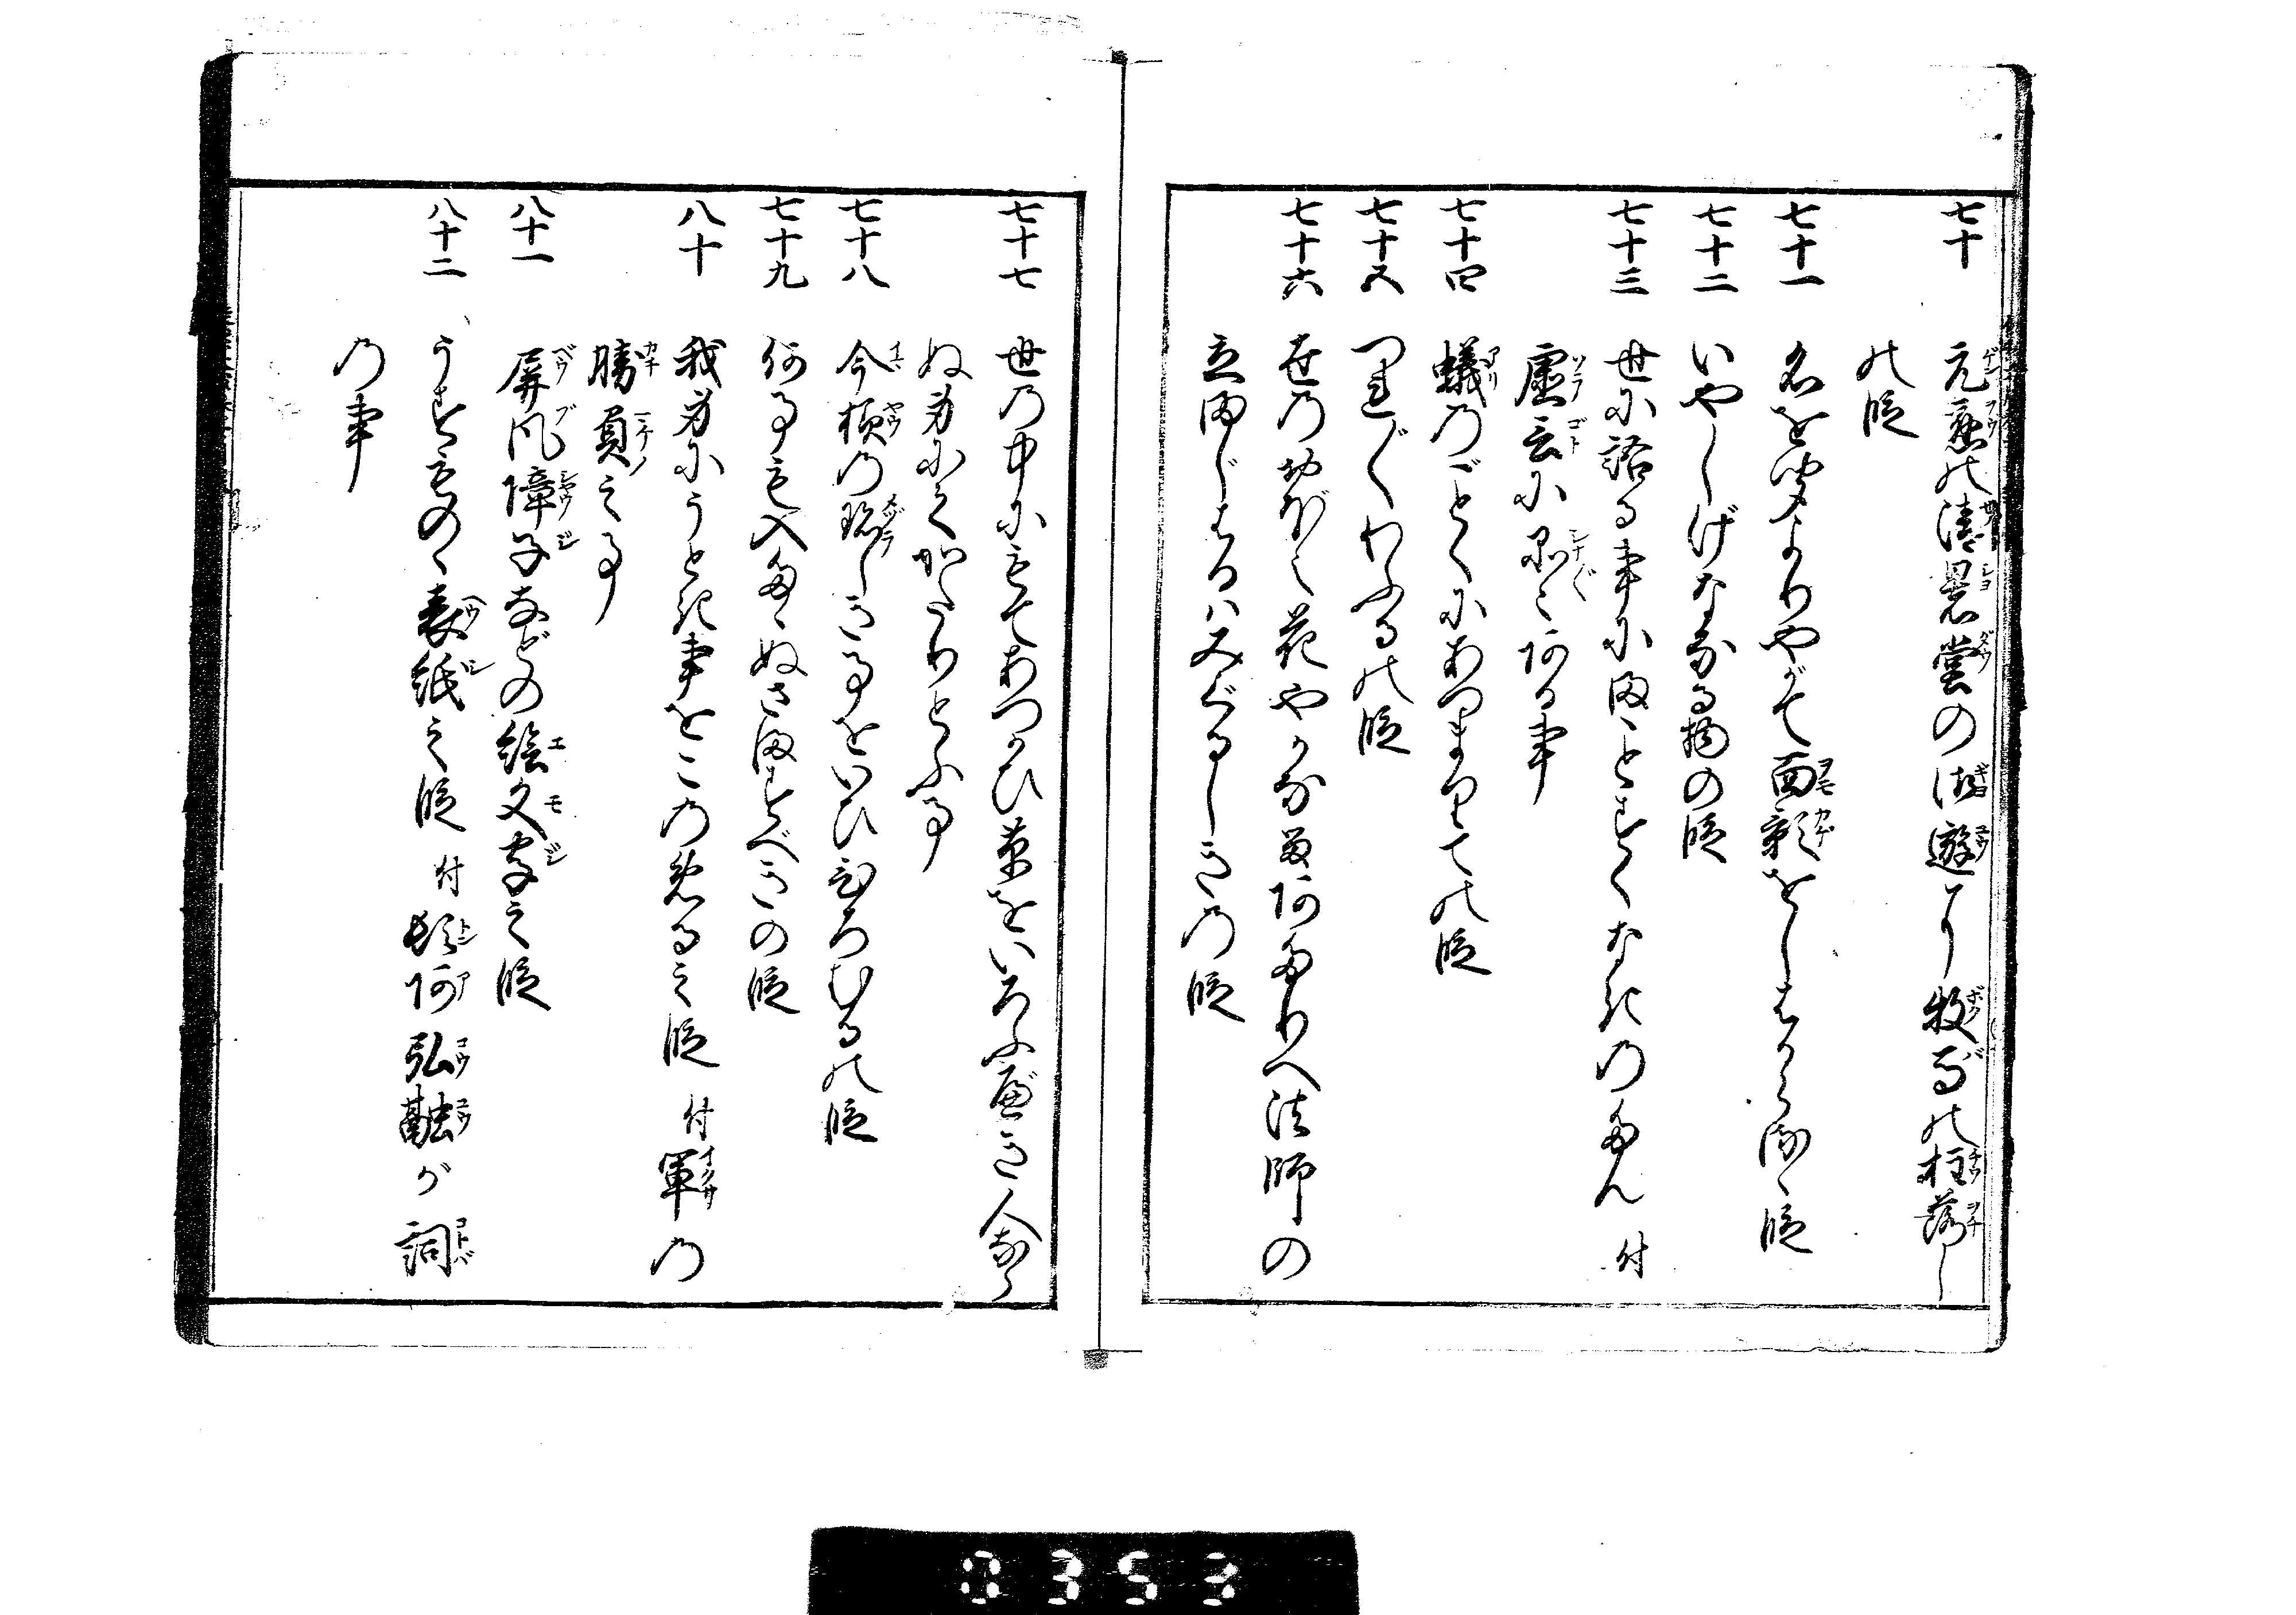 七十 元應の清暑堂の御遊に牧馬の柱落し
の段
七十一 名を聞よりやがて面影をしはからるゝ段
七十二 いやしげなる物の段
七十三 世に語る事にまことすくなきのだん 付
虚言に品〻ある事
七十四 蟻のごとくにあつまりての段
七十五 つれ〴〵わふるの段
七十六 世のおぼえ花やかなるあたりへ法師の
立まじはるはみぐるしきの段
七十七 世の中にもてあつかひ草をいろふべき人なら
ぬ身によくかたりとふ事
七十八 今様の珎しき事をいひひろむるの段
七十九 何事も入たゝぬさますべきの段
八十 我身にうとき事をこのめる之段 付 軍の
勝負之事
八十一 屏風障子などの絵文字之段
八十二 うすものゝ表紙之段 付 頓阿 弘融が詞
の事
0353